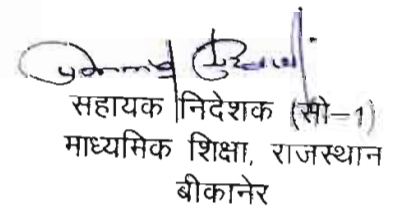 सहायक निदेशक (सी-1)
माध्यमिक शिक्षा, राजस्थान
बीकानेर